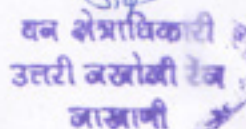 वन क्षेत्राधिकारी
उत्तरी जखोली रेंज
जाखाणी